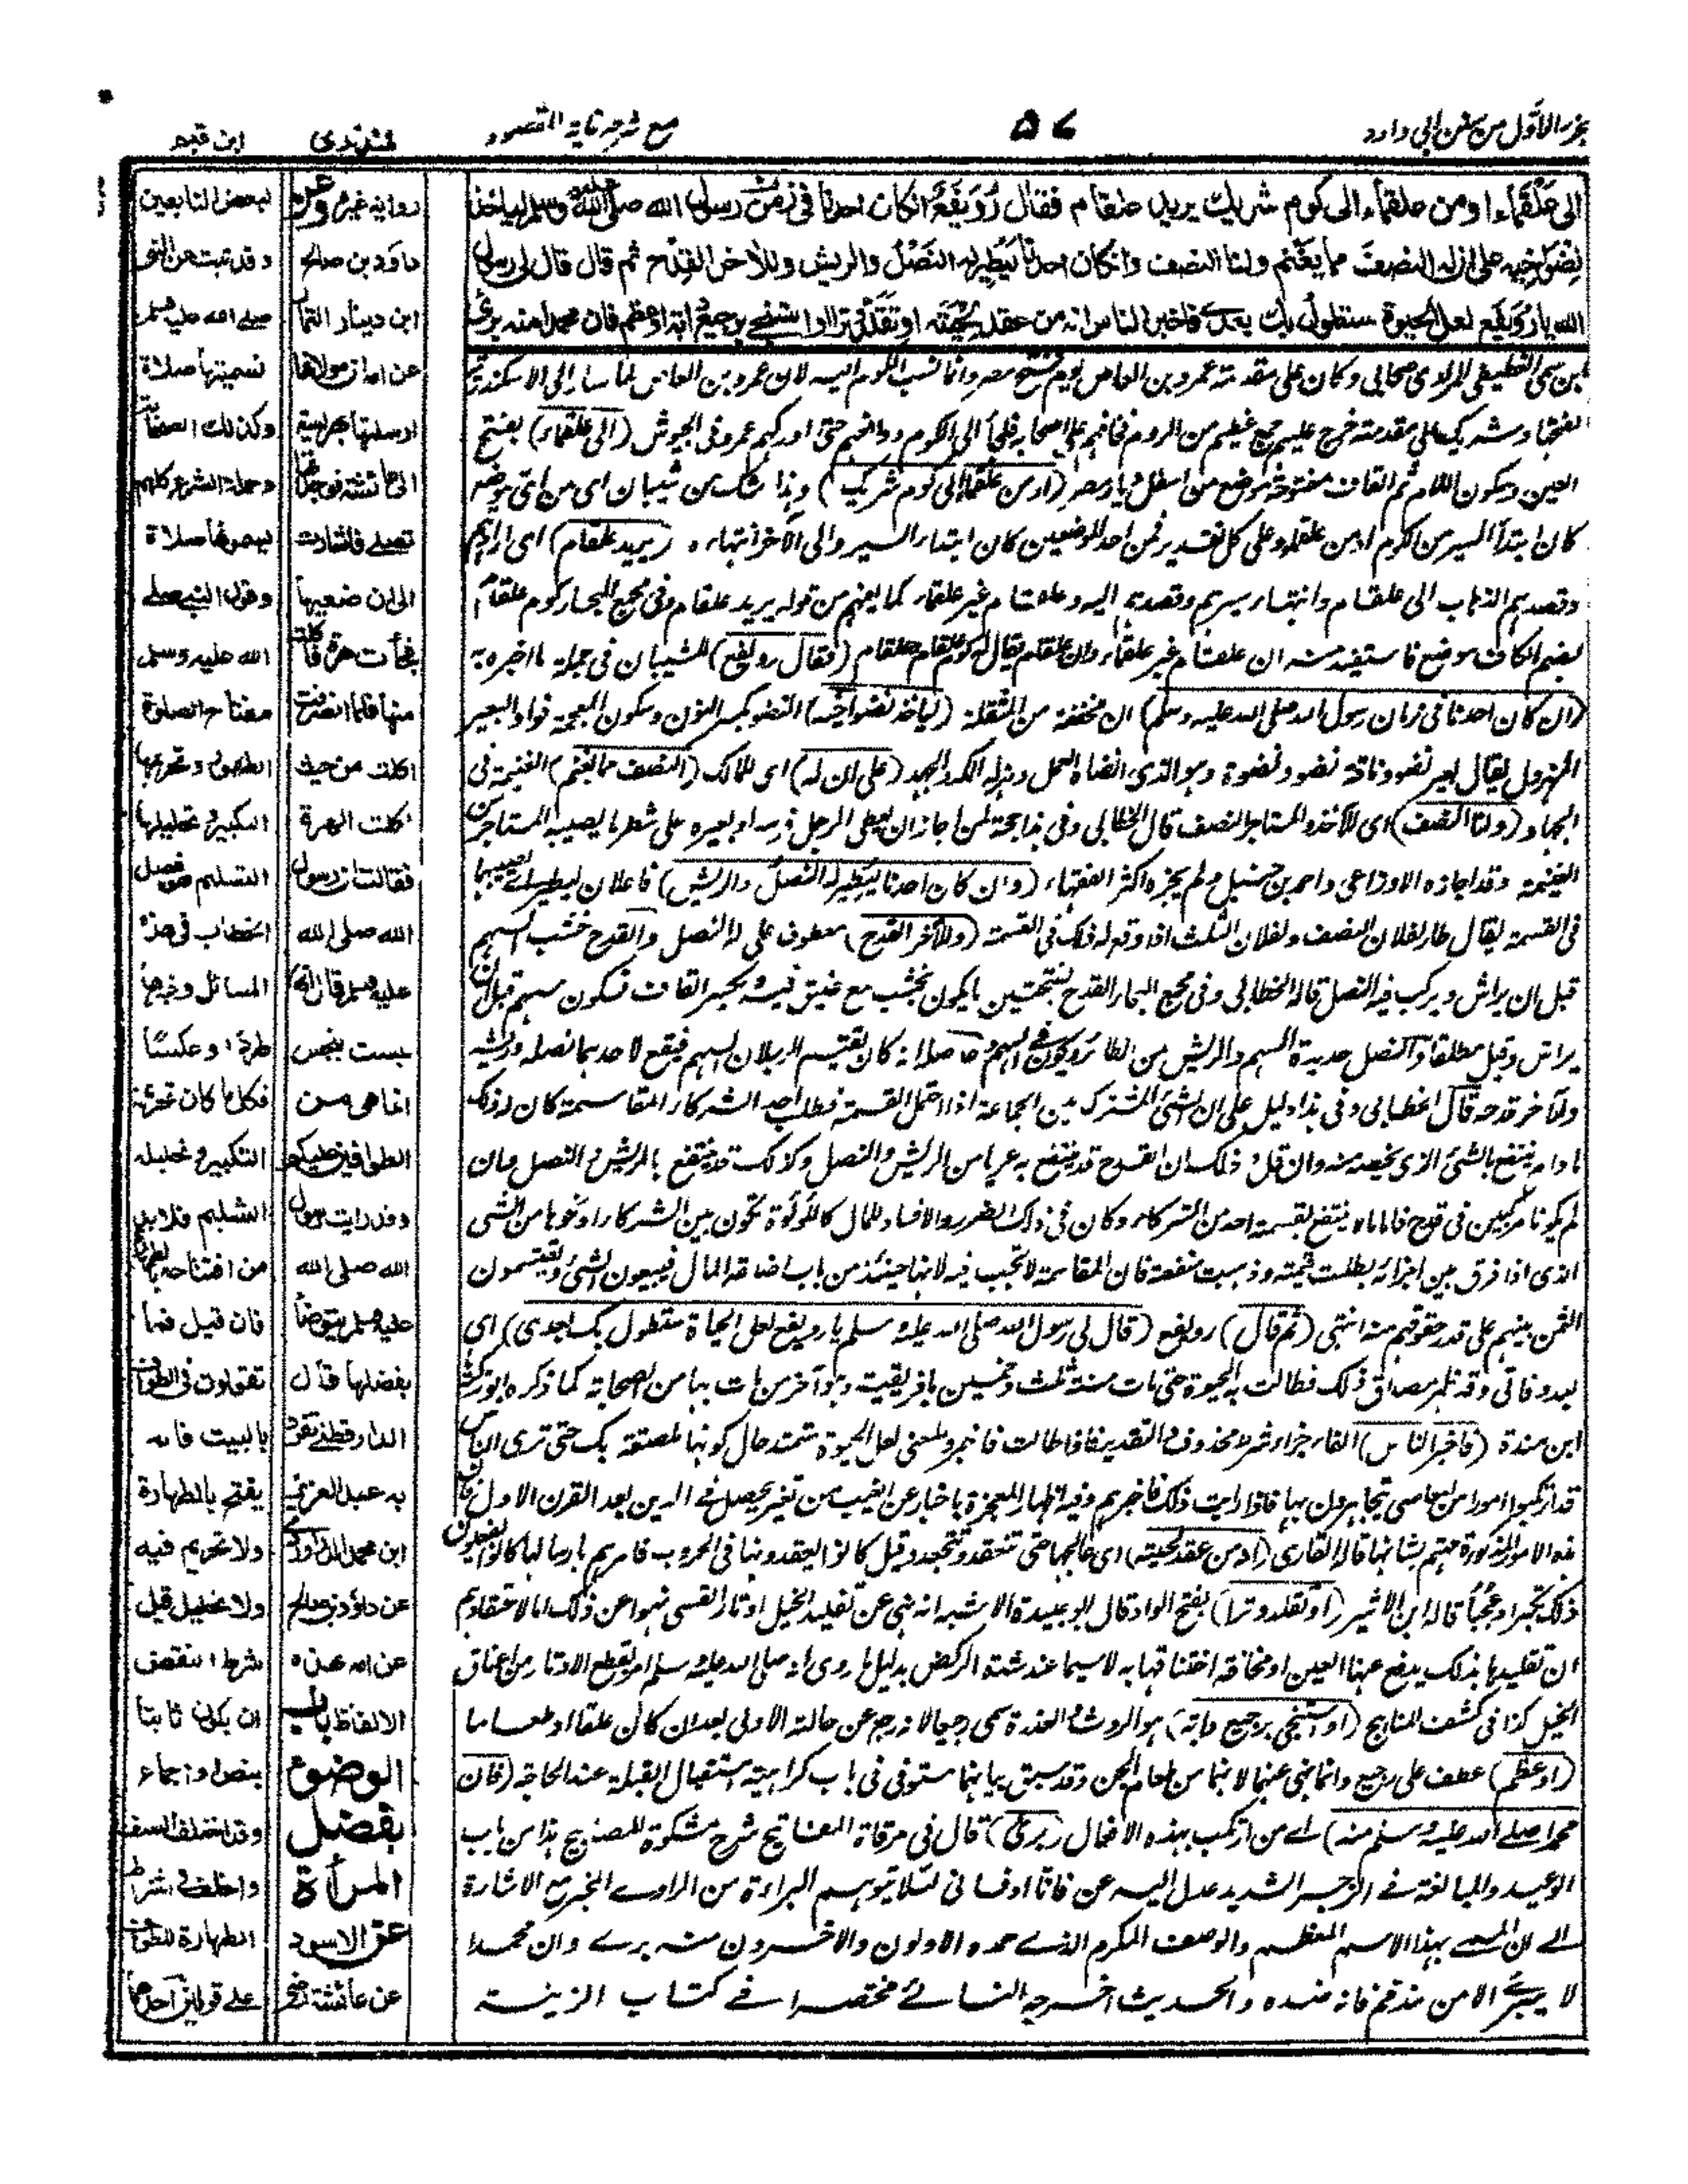 جزء الاول من سنن ابي داود
٥٧
مع شرحه غاية المقصود
منذري
ابن قيم
الى علقماء او من علقماء الى كوم شريك يريد علقام فقال رويفع ان كان احدنا في زمن رسول الله صلى الله عليه وسلم لياخذ
نضو اخيه على ان له النصف مما يغنم ولنا النصف وان كان احدنا ليطير له النصل والريش وللاخر القدح ثم قال قال لي رسول
الله يا رويفع لعل الحيوة ستطول بك بعدي فاخبر الناس انه من عقد لحيته او تقلد وترا او استنجى برجيع دابة او عظم فان محمدا منه بريء
بن سمي الغطيفي المرادي صحابي وكان على مقدمة عمرو بن العاص يوم فتح مصر وانما نسب الكوم اليه لان عمرو بن العاص لما سار الى الاسكندرية
لفتحها وشريك على مقدمته خرج عليهم جمع عظيم من الروم فخافهم على اصحابه فلجأ الى الكوم ودافعهم حتى ادركهم عمرو في الجيوش (الى علقماء) بفتح
العين وسكون اللام ثم القاف مفتوحة موضع من اسفل ديار مصر (او من علقماء الى كوم شريك) وهذا شك من شيبان اى من اى موضع
كان ابتدأ السير من الكوم او من علقماء وعلى كل تقدير فمن احد الموضعين كان ابتداء السير والى الآخر انتهاءه (يريد علقام) اى ارادتهم
وقصدهم الذهاب الى علقام وانتهاء سيرهم وقصدهم اليه وعلقام غير علقماء كما يفهم من قوله يريد علقام وفي مجمع البحار كوم علقام
بضم الكاف موضع فاستفيد منه ان علقام غير علقماء وان علقام يقال له كوم علقام (فقال رويفع) للشيبان في جملة ما اخبره به
(ان كان احدنا في زمان رسول الله صلى الله عليه وسلم) ان مخففة من المثقلة (لياخذ نضو اخيه) النضو بكسر النون وسكون المعجمة فواو البعير
المهزول يقال بعير نضو وناقة نضو ونضوة وهو الذي انضاه العمل وهزله الكد والجهد (على ان له) اى للمالك (النصف مما يغنم) الغنيمة في
الجهاد (ولنا النصف) اى للآخذ والمستاجر النصف قال الخطابي وفي هذا حجة لمن اجاز ان يعطي الرجل فرسه او بعيره على شطر ما يصيبه المستاجر من
الغنيمة وقد اجازه الاوزاعي واحمد بن حنبل ولم يجزه اكثر الفقهاء (وان كان احدنا ليطير له النصل والريش) فاعلان ليطير اى يصيبهما
في القسمة يقال طار لفلان النصف ولفلان الثلث اذا وقع له ذلك في القسمة (وللآخر القدح) معطوف على له النصل والقدح خشب السهم
قبل ان يراش ويركب فيه النصل قاله الخطابي وفي مجمع البحار القدح بفتحتين ما يكون بخشب مع ضيق فيه وبكسر القاف فسكون سهم قبل ان
يراش وقيل مطلقا والنصل حديدة السهم والريش من الطائر ويكون في السهم حاصله انه كان يقتسم الرجلان السهم فيقع لاحدهما نصله وريشه
وللآخر قدحه قال الخطابي وفي هذا دليل على ان الشئ المشترك بين الجماعة اذا احتمل القسمة فطلب احد الشركاء المقاسمة كان له ذلك
ما دام ينتفع بالشئ الذي يخصه منه وان قل وذلك ان القدح قد ينتفع به عريا من الريش والنصل وكذلك قد ينتفع بالريش والنصل وان
لم يكونا مركبين في قدح فاما ما لا ينتفع بقسمته احد من الشركاء وكان في ذلك الضرر والافساد للمال كاللؤلؤة تكون بين الشركاء او نحوها من الشئ
الذي اذا فرق بين اجزائه بطلت قيمته وذهبت منفعته فان المقاسمة لا تجب فيه لانها حينئذ من باب اضاعة المال فيبيعون الشئ ويقتسمون
الثمن بينهم على قدر حقوقهم منه انتهى (ثم قال) رويفع (قال لي رسول الله صلى الله عليه وسلم يا رويفع لعل الحياة ستطول بك بعدي) اى
بعد وفاتي وقد ظهر مصداق ذلك فطالت به الحيوة حتى مات سنة ثلث وخمسين بافريقية وهو آخر من مات بها من الصحابة كما ذكره ابو زكريا
ابن مندة (فاخبر الناس) الفاء جزاء شرط محذوف والتقدير فاذا طالت فاخبر والمعنى لعل الحيوة ستمتد حال كونها ملصقة بك حتى ترى الناس
قد ارتكبوا امورا من المعاصي يتجاهرون بها فاذا رايت ذلك فاخبرهم وفيه اظهار المعجزة باخبار عن الغيب من تغير يحصل في الدين بعد القرن الاول فان
هذه الامور المذكورة مهتم بشانها قاله القاري (او من عقد لحيته) اى عالجها حتى تنعقد وتتجعد وقيل كانوا يعقدونها في الحروب فامرهم بارسالها كانوا يفعلون
ذلك تكبرا وعجبا قاله ابن الاثير (او تقلد وترا) بفتح الواو قال ابو عبيدة الاشبه انه نهى عن تقليد الخيل اوتار القسي نهوا عن ذلك اما لاعتقادهم
ان تقليدها بذلك يدفع عنها العين او مخافة اختناقها به لاسيما عند شدة الركض بدليل ما روي انه صلى الله عليه وسلم امر بقطع الاوتار من اعناق
الخيل كذا في كشف المناهج (او استنجى برجيع دابة) هو الروث والعذرة سمي رجيعا لانه رجع عن حالته الاولى بعد ان كان علفا او طعاما
(او عظم) عطف على رجيع وانما نهى عنهما لانهما من طعام الجن وقد سبق بيانهما مستوفى في باب كراهية استقبال القبلة عند الحاجة (فان
محمدا صلى الله عليه وسلم منه) اى من ارتكب بهذه الافعال (برئ) قال في مرقاة المفاتيح شرح مشكوة المصابيح هذا من باب
الوعيد والمبالغة في الزجر الشديد عدل اليه عن فانا او فاني لئلا يتوهم البراءة من الراوي المخبر مع الاشارة
الى ان المسمى بهذا الاسم المعظم والوصف المكرم الذي حمده الاولون والاخرون منه بري وان محمدا
لا يتبرأ الا من مذمم فانه ضده والحديث اخرجه النسائي مختصرا في كتاب الزينة
رواية غيره وعن
داود بن صالح
ابن دينار التمار
عن امه ان مولاتها
ارسلتها بهريسة
الى عائشة فوجدتها
تصلي فاشارت
الى ان ضعيها
فجاءت هرة فاكلت
منها فلما انصرفت
اكلت من حيث
اكلت الهرة
فقالت ان رسول
الله صلى الله
عليه وسلم قال انها
ليست بنجس
انما هي من
الطوافين عليكم
وقد رايت رسول
الله صلى الله
عليه وسلم يتوضأ
بفضلها قال
الدارقطني تفرد
به عبد العزيز
ابن محمد الدراوردي
عن داود بن صالح
عن امه بهذه
الالفاظ باب
الوضوء
بفضل
المرأة
عن الاسود
عن عائشة رضي
لبعض التابعين
وقد ثبت عن النبي
صلى الله عليه وسلم
تسميتها صلاة
وكذلك الصحابة
وحملة الشرع كلهم
يسمونها صلاة
وقول النبي صلى
الله عليه وسلم
مفتاح الصلوة
الطهور وتحريمها
التكبير وتحليلها
التسليم هو فصل
الخطاب في هذه
المسائل وغيرها
طردا وعكسا
فكل ما كان تحريمه
التكبير وتحليله
التسليم فلا بد
من افتتاحه بالطهارة
فان قيل فما
تقولون في الطواف
بالبيت فانه
يفتتح بالطهارة
ولا تحريم فيه
ولا تحليل قيل
شرط النقض
ان يكون ثابتا
بنص او اجماع
وقد اختلف السلف
والخلف في اشتراط
الطهارة للطواف
على قولين احدهما